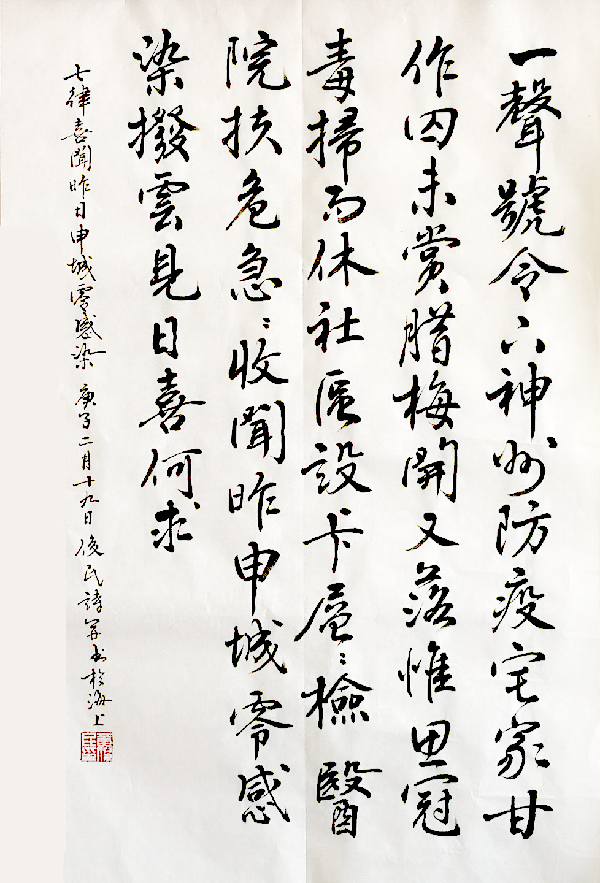 一聲號令下神州防疫宅家甘
作囚未赏腊梅開又落惟思冠
毒掃而休社區設卡層〻檢醫
院扶危急〻收聞昨申城零感
染撥雲見日喜何求
七律喜聞昨日申城零感染 庚子二月十九日 俊民詩草書於海上